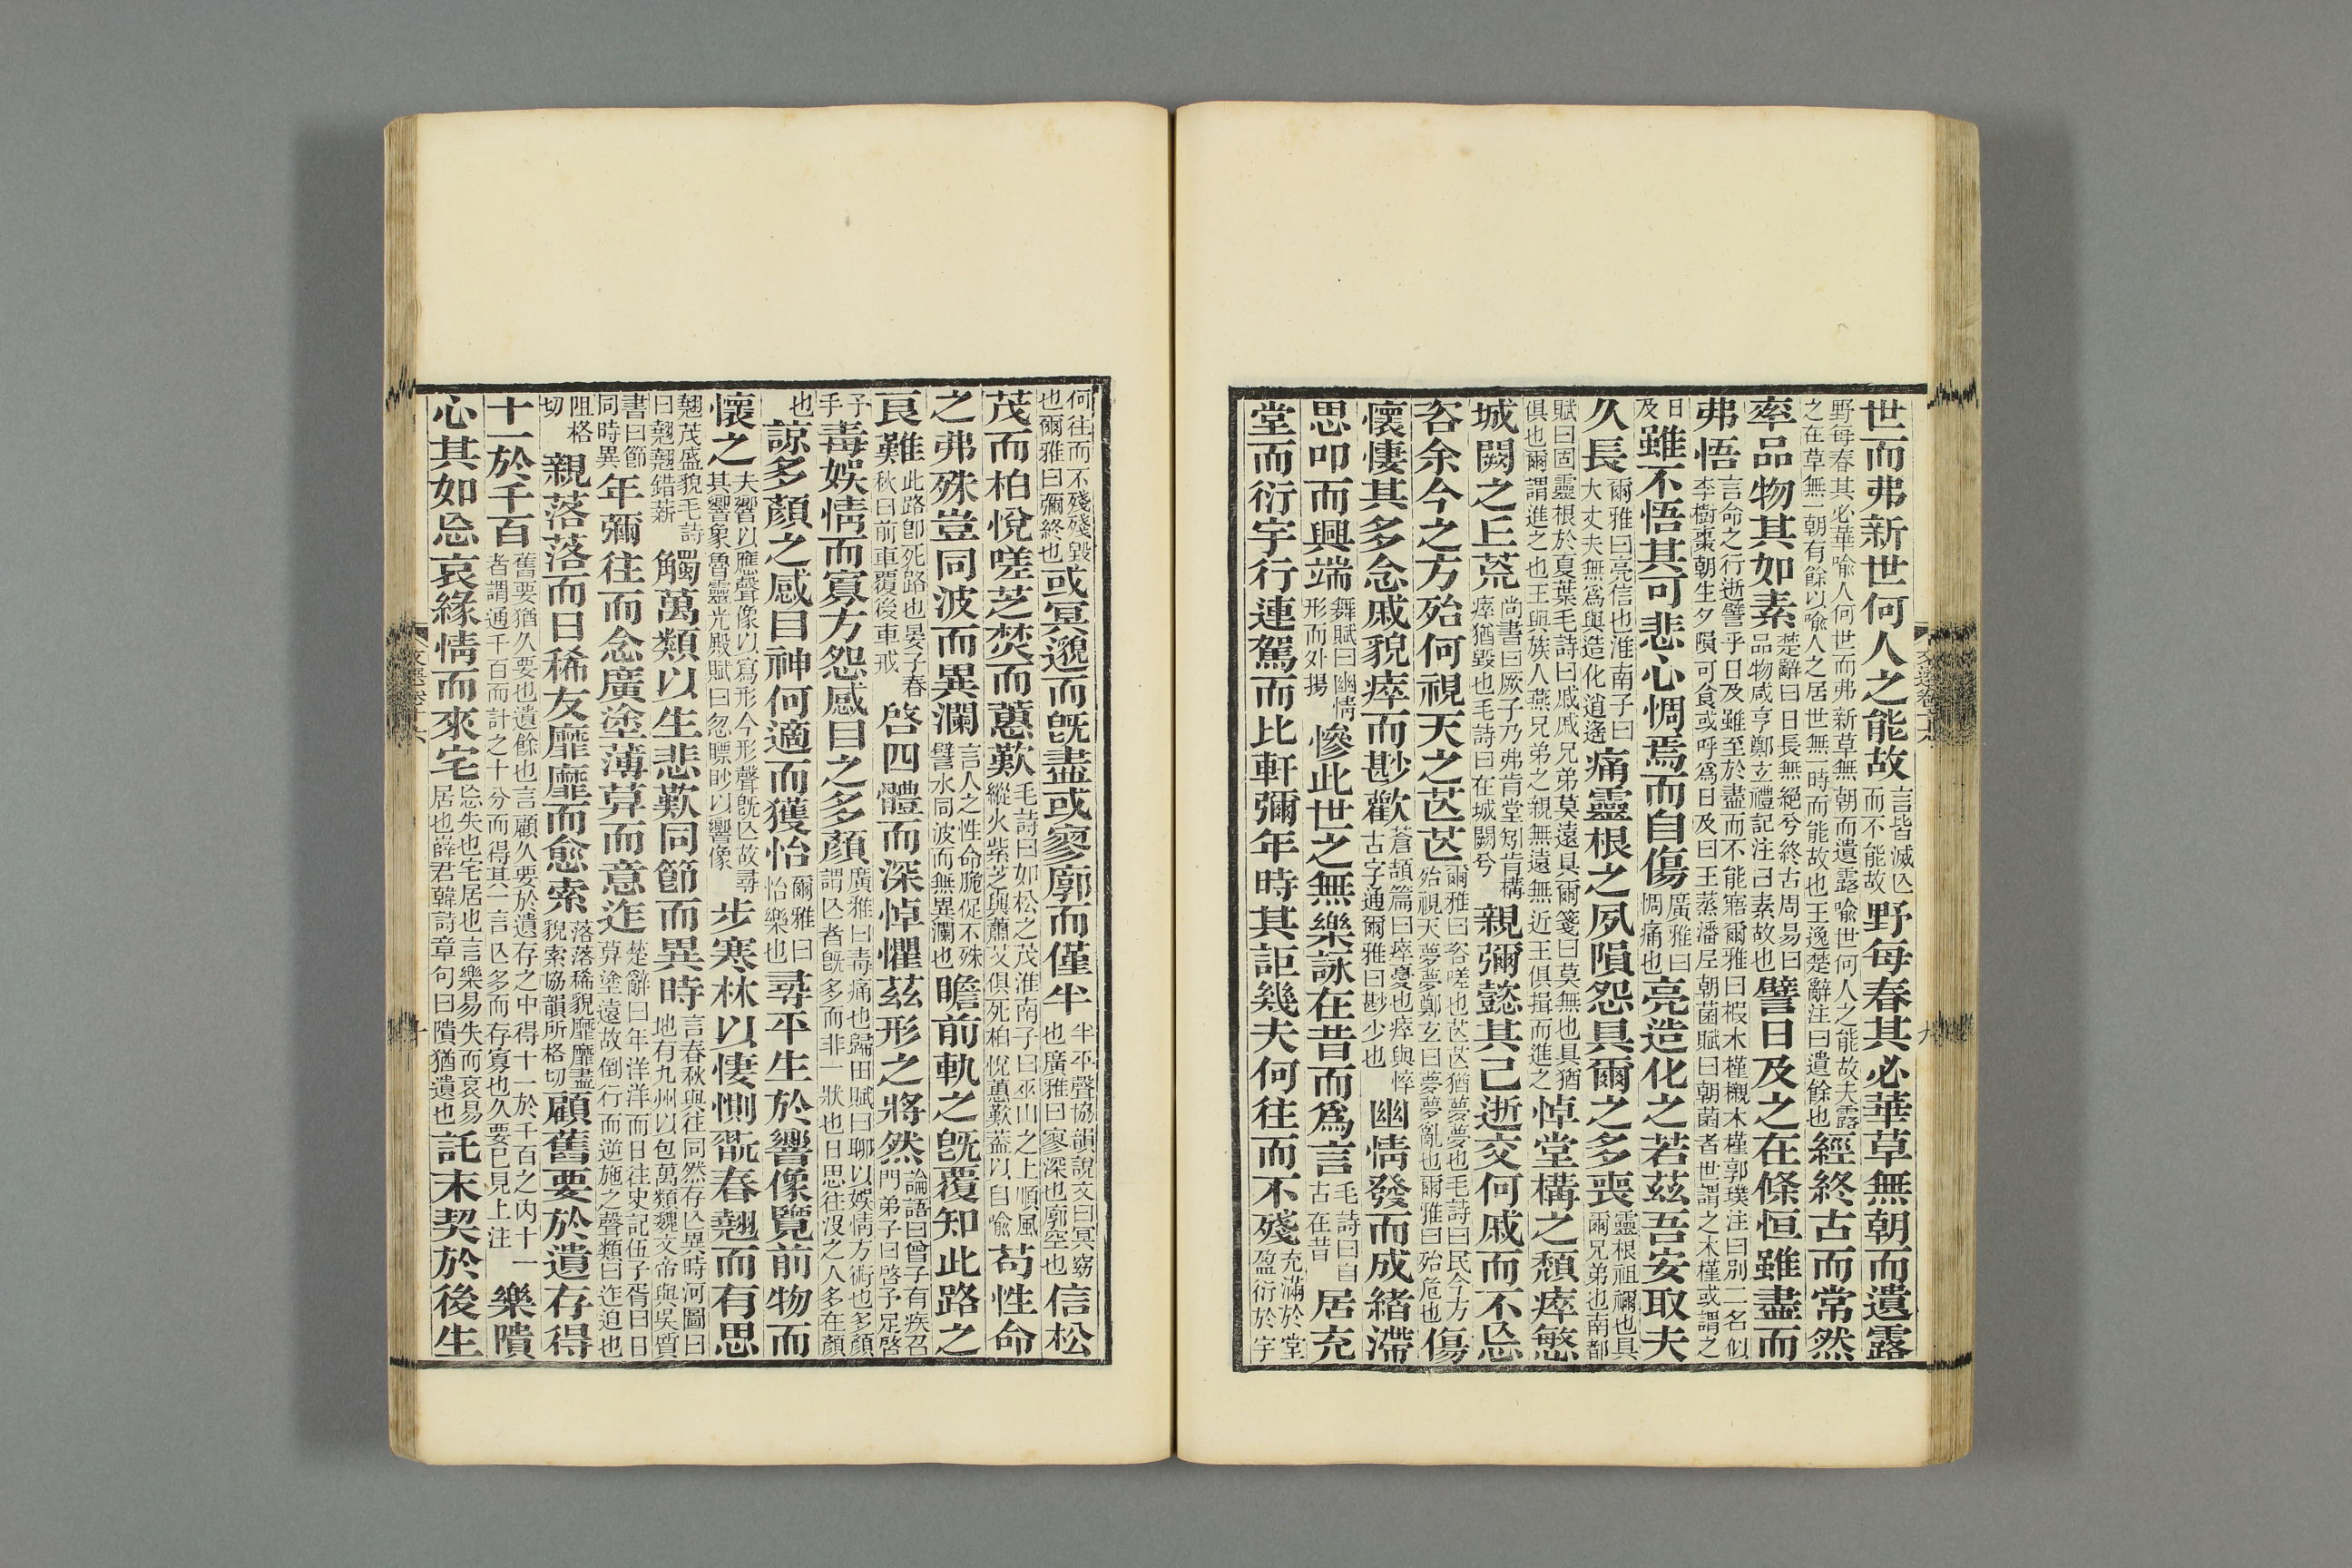 世而弗新世何人之能故言皆滅亾而不能故野每春其必華草無朝而遺露
野每春其必華喻人何世而弗新草無朝而遺露喻世何人之能故夫露之在草無一朝有餘以喻人之居世無一時而能故也王逸楚辭注曰遺餘也經終古而常然
率品物其如素楚辭曰日長無絕兮終古周易曰品物咸亨鄭玄禮記注曰素故也譬日及之在條恒雖盡而
弗悟言命之行逝譬乎日及雖至於盡而不能寤爾雅曰椵木槿櫬木槿郭璞注曰別二名似李樹棗朝生夕隕可食或呼爲日及曰王蒸潘尼朝菌賦曰朝菌者世謂之木槿或謂之
日及雖不悟其可悲心惆焉而自傷廣雅曰惆痛也亮造化之若茲吾安取夫
久長爾雅曰亮信也淮南子曰大丈夫無爲與造化逍遙痛靈根之夙隕怨具爾之多喪靈根祖禰也具爾兄弟也南都
賦曰固靈根於夏葉毛詩曰戚戚兄弟莫遠具爾箋曰莫無也具猶俱也爾謂進之也王與族人燕兄弟之親無遠無近王俱揖而進之悼堂構之頹瘁慜
城闕之丘荒尚書曰厥子乃弗肯堂矧肯構瘁猶毀也毛詩曰在城闕兮親彌懿其已逝交何戚而不忘
咨余今之方殆何視天之芒芒爾雅曰咨嗟也芒芒猶夢夢也毛詩曰民今方殆視天夢夢鄭玄曰夢夢亂也爾雅曰殆危也傷
懷悽其多念戚貌瘁而尠歡蒼頡篇曰瘁憂也瘁與悴古字通爾雅曰尠少也幽情發而成緒滯
思叩而興端舞賦曰幽情形而外揚慘此世之無樂詠在昔而爲言毛詩曰自古在昔居充
堂而衍宇行連駕而比軒彌年時其詎幾夫何往而不殘充滿於堂盈衍於宇
何往而不殘殘毀也爾雅曰彌終也或冥邈而既盡或寥廓而僅半半平聲協韻說文曰冥窈也廣雅曰寥深也廓空也信松
茂而柏悅嗟芝焚而蕙歎毛詩曰如松之茂淮南子曰巫山之上順風縱火紫芝與蕭艾俱死柏悅蕙歎蓋以自喻苟性命
之弗殊豈同波而異瀾言人之性命脆促不殊譬水同波而無異瀾也瞻前軌之既覆知此路之
良難此路卽死路也晏子春秋曰前車覆後車戒啓四體而深悼懼茲形之將然論語曰曾子有疾召門弟子曰啓予足啓
予手毒娛情而寡方怨感目之多顏廣雅曰毒痛也歸田賦曰聊以娛情方術也多顏謂亾者既多而非一狀也日思往沒之人多在顏
也諒多顏之感目神何適而獲怡爾雅曰怡樂也尋平生於響像覽前物而
懷之夫響以應聲像以寫形今形聲既亾故尋其響象魯靈光殿賦曰忽瞟眇以響像步寒林以悽惻翫春翹而有思
翹茂盛貌毛詩曰翹翹錯薪觸萬類以生悲歎同節而異時言春秋與往同然存亾異時河圖曰地有九州以包萬類魏文帝與吳質
書曰節同時異年彌往而念廣塗薄暮而意迮楚辭曰年洋洋而日往史記伍子胥曰日暮塗遠故倒行而逆施之聲類曰迮迫也
阻格切親落落而日稀友靡靡而愈索落落稀貌靡靡盡貌索協韻所格切顧舊要於遺存得
十一於千百舊要猶久要也遺餘也言顧久要於遺存之中得十一於千百之內十一者謂通千百而計之十分而得其一言亾多而存寡也久要已見上注樂隤
心其如忘哀緣情而來宅忘失也宅居也言樂易失而哀易居也薛君韓詩章句曰隤猶遺也託末契於後生